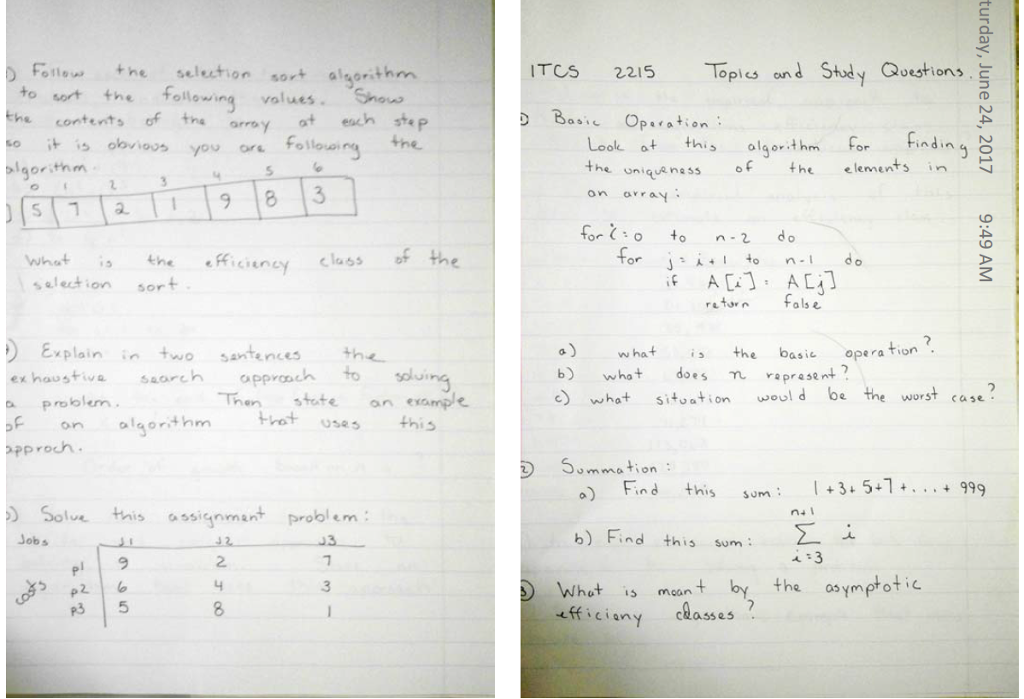 ) Follow the selection sort algorithm
to sort the following values. Show
the contents of the array at each step
so it is obvious you are following the
algorithm.
0 1 2 3 4 5 6
5 7 2 1 9 8 3
What is the efficiency class of the
selection sort.
) Explain in two sentences the
exhaustive search approach to solving
a problem. Then state an example
of an algorithm that uses this
approch.
) Solve this assignment problem:
Jobs J1 J2 J3
p1 9 2 7
p2 6 4 3
p3 5 8 1
ITCS 2215 Topics and Study Questions.
Basic Operation:
Look at this algorithm for finding
the uniqueness of the elements in
an array:
for i=0 to n-2 do
for j=i+1 to n-1 do
if A[i]=A[j]
return false
a) what is the basic operation?
b) what does n represent?
c) what situation would be the worst case?
2) Summation:
a) Find this sum: 1+3+5+7+...+999
n+1
b) Find this sum: Σ i
i=3
3) What is meant by the asymptotic
efficieny classes?
turday, June 24, 2017 9:49 AM